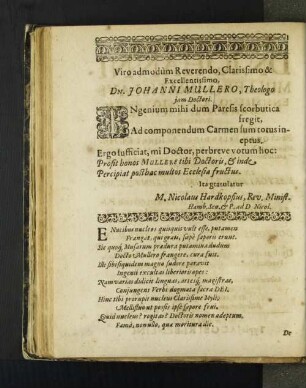 Viro admodum Reverendo, Clarissimo &
Excellentissimo,
Dn. JOHANNI MULLERO, Theologo
jam Doctori.
INgenium mihi dum Paresis scorbutica
fregit,
Ad componendum Carmen sum totus in-
eptus,
Ergo sufficiat, mi Doctor, perbreve votum hoc:
Prosit honos MULLERE tibi Doctoris, & inde
Percipiat posthac multos Ecclesia fructus.
Ita gratulatur
M. Nicolaus Hardkopfius, Rev. Minist.
Hamb. Sen. & P. ad D. Nicol.
E Nucibus nucleos quisquis vult esse, putamen
Frangat, qui grati, sæpè saporis erunt.
Sic quoq; Musarum pradura putamina dudum
Docte Mullero frangere, cura fuit.
Ingenii excultas liberioris opes:
Nam varias didicit linguas, arteq; magistras,
Conjungens Verbi dogmata sacra DEI.
Hinc tibi prorupit nucleus Clarissime
Quis nucleus? rogitas? Doctoris nomen adeptum,
Fama, non ullo, qua moritura die.
De